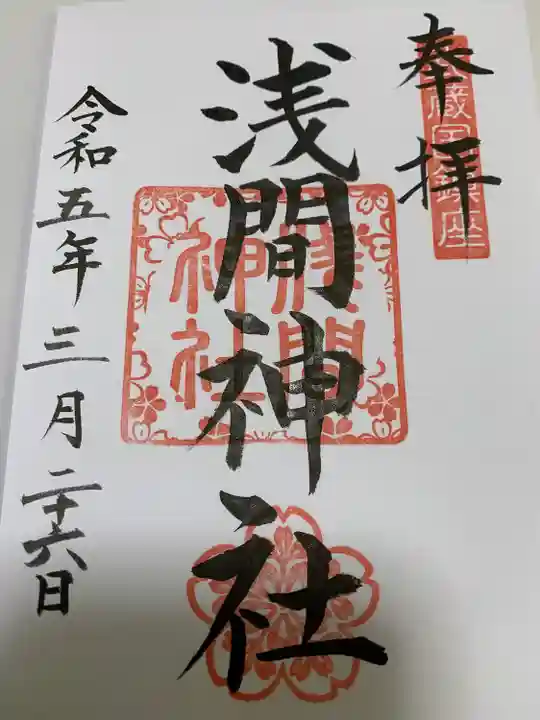 奉拝
武蔵国鎮座
浅間神社
浅間
神社
令和五年三月二十六日